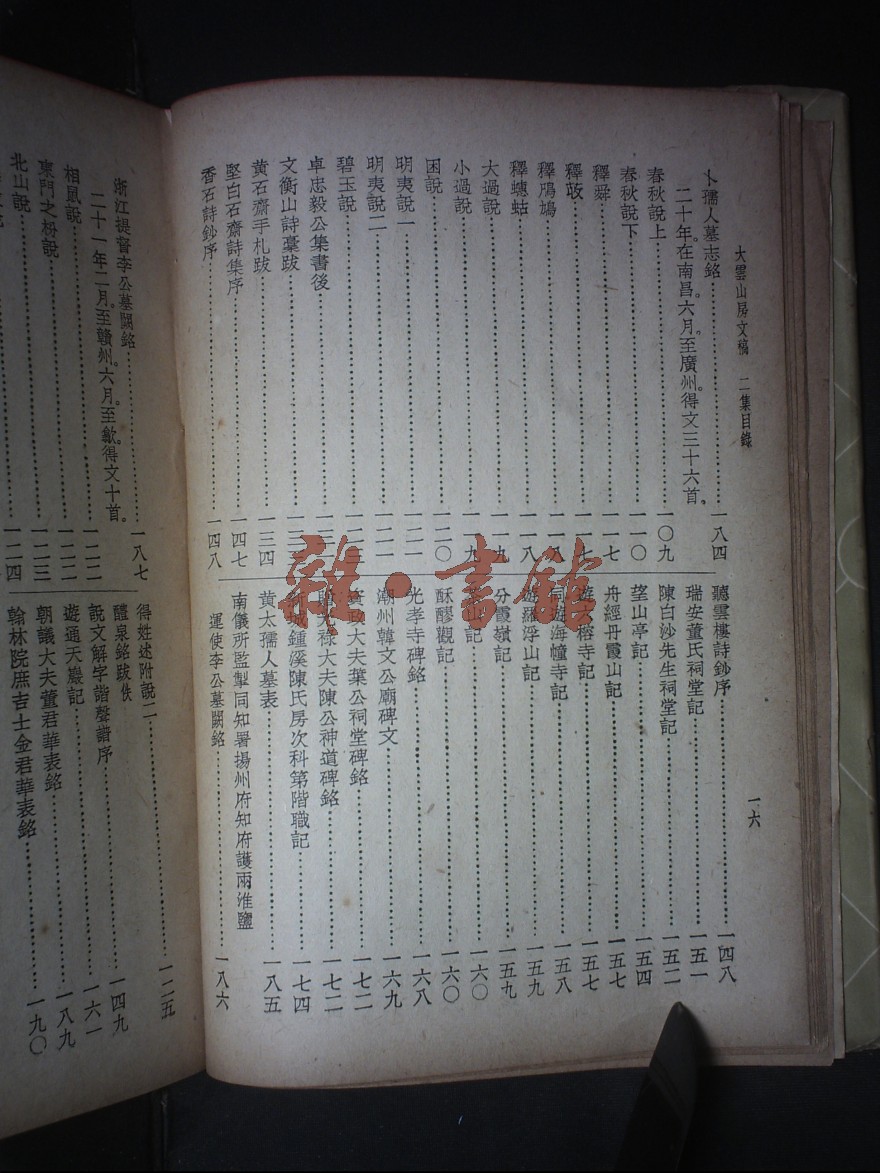 大雲山房文稿 二集目錄
一六
卜孺人墓志銘 一八四
二十年。在南昌。六月。至廣州。得文三十六首。
春秋說上 一〇九
春秋說下 一一〇
釋舜 一一七
釋蔱 一一七
釋鳲鳩 一一八
釋蟪蛄 一一八
大過說 一一九
小過說 一一九
困說 一二〇
明夷說一 一二一
明夷說二 一二一
碧玉說 一二三
卓忠毅公集書後
文衡山詩稾跋 一三三
黃石齋手札跋 一三四
堅白石齋詩集序 一四七
香石詩鈔序 一四八
聽雲樓詩鈔序 一四八
瑞安董氏祠堂記 一五一
陳白沙先生祠堂記 一五二
望山亭記 一五四
舟經丹霞山記 一五七
遊六榕寺記 一五七
同遊海幢寺記 一五八
遊羅浮山記 一五九
分霞嶺記 一五九
山記 一六〇
酥醪觀記 一六〇
光孝寺碑銘 一六八
潮州韓文公廟碑文 一六九
資政大夫葉公祠堂碑銘 一七二
光祿大夫陳公神道碑銘 一七二
新城鍾溪陳氏房次科第階職記 一七四
黃太孺人墓表 一八五
南儀所監掣同知署揚州府知府護兩淮鹽
運使李公墓闕銘 一八六
浙江提督李公墓闕銘 一八七
二十一年。二月。至贛州。六月。至歙。得文十首。
相鼠說 一二二
東門之枌說 一二三
北山說 一二四
得姓述附說二 一二五
醴泉銘跋佚
說文解字諧聲譜序 一四九
遊通天巖記 一六一
朝議大夫董君華表銘 一八九
翰林院庶吉士金君華表銘 一九〇
雜·書館